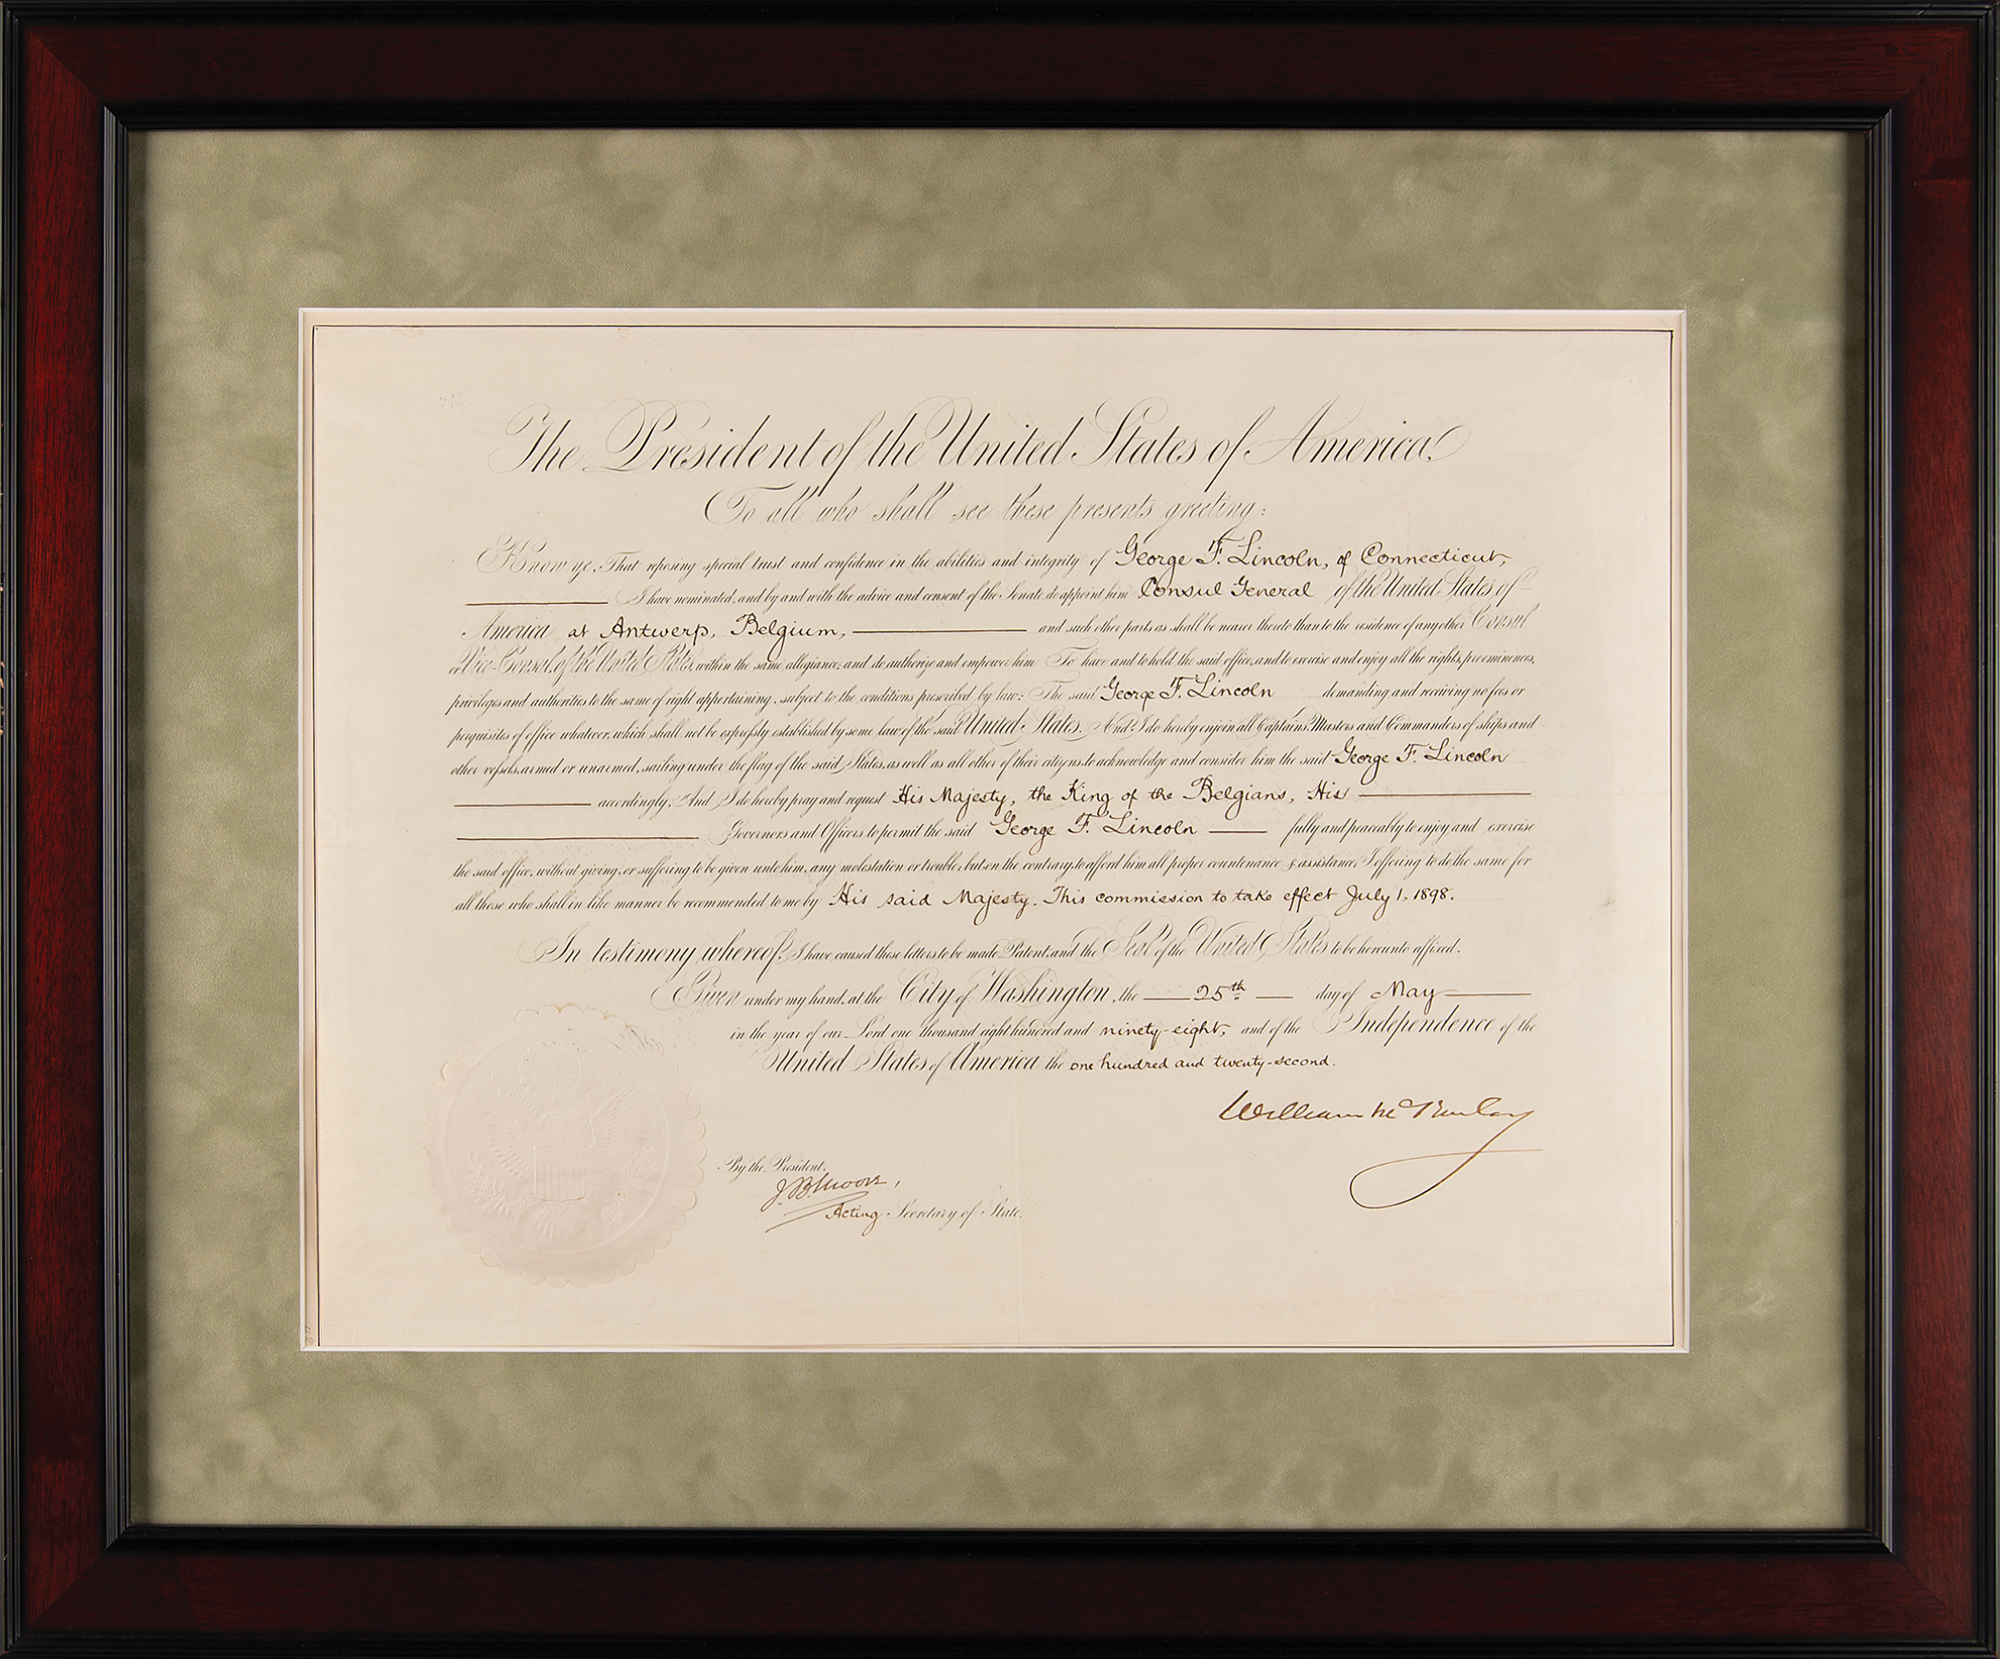 The President of the United States of America.
To all who shall see these presents greeting:
Know ye, That reposing special trust and confidence in the abilities and integrity of George F. Lincoln, of Connecticut,
I have nominated, and by and with the advice and consent of the Senate, do appoint him Consul General of the United States of
America at Antwerp, Belgium, and such other parts as shall be nearer thereto than to the residence of any other Consul
or Vice-Consul of the United States, within the same allegiance, and do authorize and empower him To have and to hold the said office, and to exercise and enjoy all the rights, preeminences,
privileges and authorities to the same of right appertaining, subject to the conditions prescribed by law: The said George F. Lincoln demanding and receiving no fees or
perquisites of office whatever, which shall not be expressly established by some law of the said United States. And I do hereby enjoin all Captains, Masters and Commanders of ships and
other vessels, armed or unarmed, sailing under the flag of the said States, as well as all other of their citizens, to acknowledge and consider him the said George F. Lincoln
accordingly. And I do hereby pray and request His Majesty, the King of the Belgians, His
Governors and Officers to permit the said George F. Lincoln fully and peaceably to enjoy and exercise
the said office, without giving, or suffering to be given unto him, any molestation or trouble, but on the contrary, to afford him all proper countenance & assistance; I offering to do the same for
all those who shall in like manner be recommended to me by His said Majesty. This commission to take effect July 1, 1898.
In testimony whereof, I have caused these letters to be made Patent, and the Seal of the United States to be hereunto affixed.
Given under my hand, at the City of Washington, the 25th day of May
in the year of our Lord one thousand eight hundred and ninety-eight, and of the Independence of the
United States of America the one hundred and twenty-second.
William McKinley
By the President,
J. B. Moore,
Acting Secretary of State.